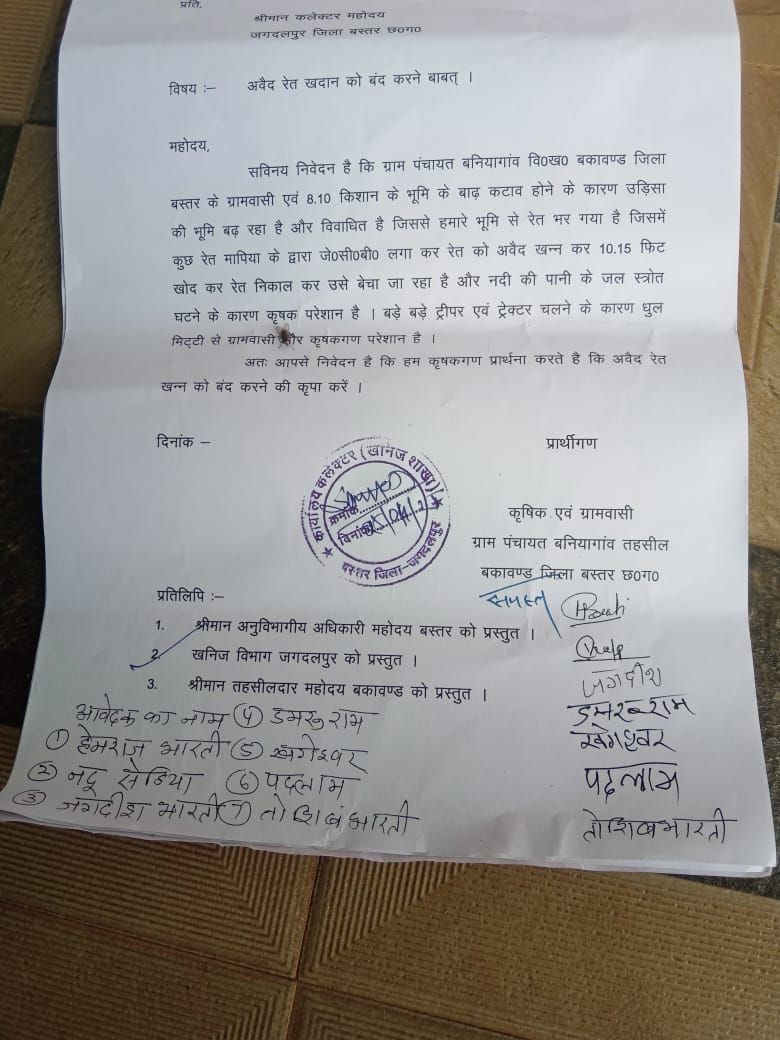 प्रति,
श्रीमान कलेक्टर महोदय
जगदलपुर जिला बस्तर छ०ग०
विषय :– अवैद रेत खदान को बंद करने बाबत् ।
महोदय,
सविनय निवेदन है कि ग्राम पंचायत बनियागांव वि०ख० बकावण्ड जिला
बस्तर के ग्रामवासी एवं 8.10 किशान के भूमि के बाढ़ कटाव होने के कारण उड़िसा
की भूमि बढ़ रहा है और विवाधित है जिससे हमारे भूमि से रेत भर गया है जिसमें
कुछ रेत मापिया के द्वारा जे०सी०बी० लगा कर रेत को अवैद खन्न कर 10.15 फिट
खोद कर रेत निकाल कर उसे बेचा जा रहा है और नदी की पानी के जल स्त्रोत
घटने के कारण कृषक परेशान है । बड़े बड़े ट्रीपर एवं ट्रेक्टर चलने के कारण धुल
मिट्टी से ग्रामवासी और कृषकगण परेशान है ।
अतः आपसे निवेदन है कि हम कृषकगण प्रार्थना करते है कि अवैद रेत
खन्न को बंद करने की कृपा करें ।
दिनांक – प्रार्थीगण
कार्यालय कलेक्टर (खनिज शाखा)
क्रमांक
दिनांक
बस्तर जिला-जगदलपुर
कृषिक एवं ग्रामवासी
ग्राम पंचायत बनियागांव तहसील
बकावण्ड जिला बस्तर छ०ग०
समस्त
प्रतिलिपि :–
1. श्रीमान अनुविभागीय अधिकारी महोदय बस्तर को प्रस्तुत ।
2. खनिज विभाग जगदलपुर को प्रस्तुत ।
3. श्रीमान तहसीलदार महोदय बकावण्ड को प्रस्तुत ।
आवेदक का नाम ④ डमरू राम
① हेमराज भारती ⑤ खगेश्वर
② नदू सेठिया ⑥ पदलाम
③ जगदीश भारती ⑦ तोशिब भारती
जगदीश
डमरू राम
खगेश्वर
पदलाम
तोशिब भारती